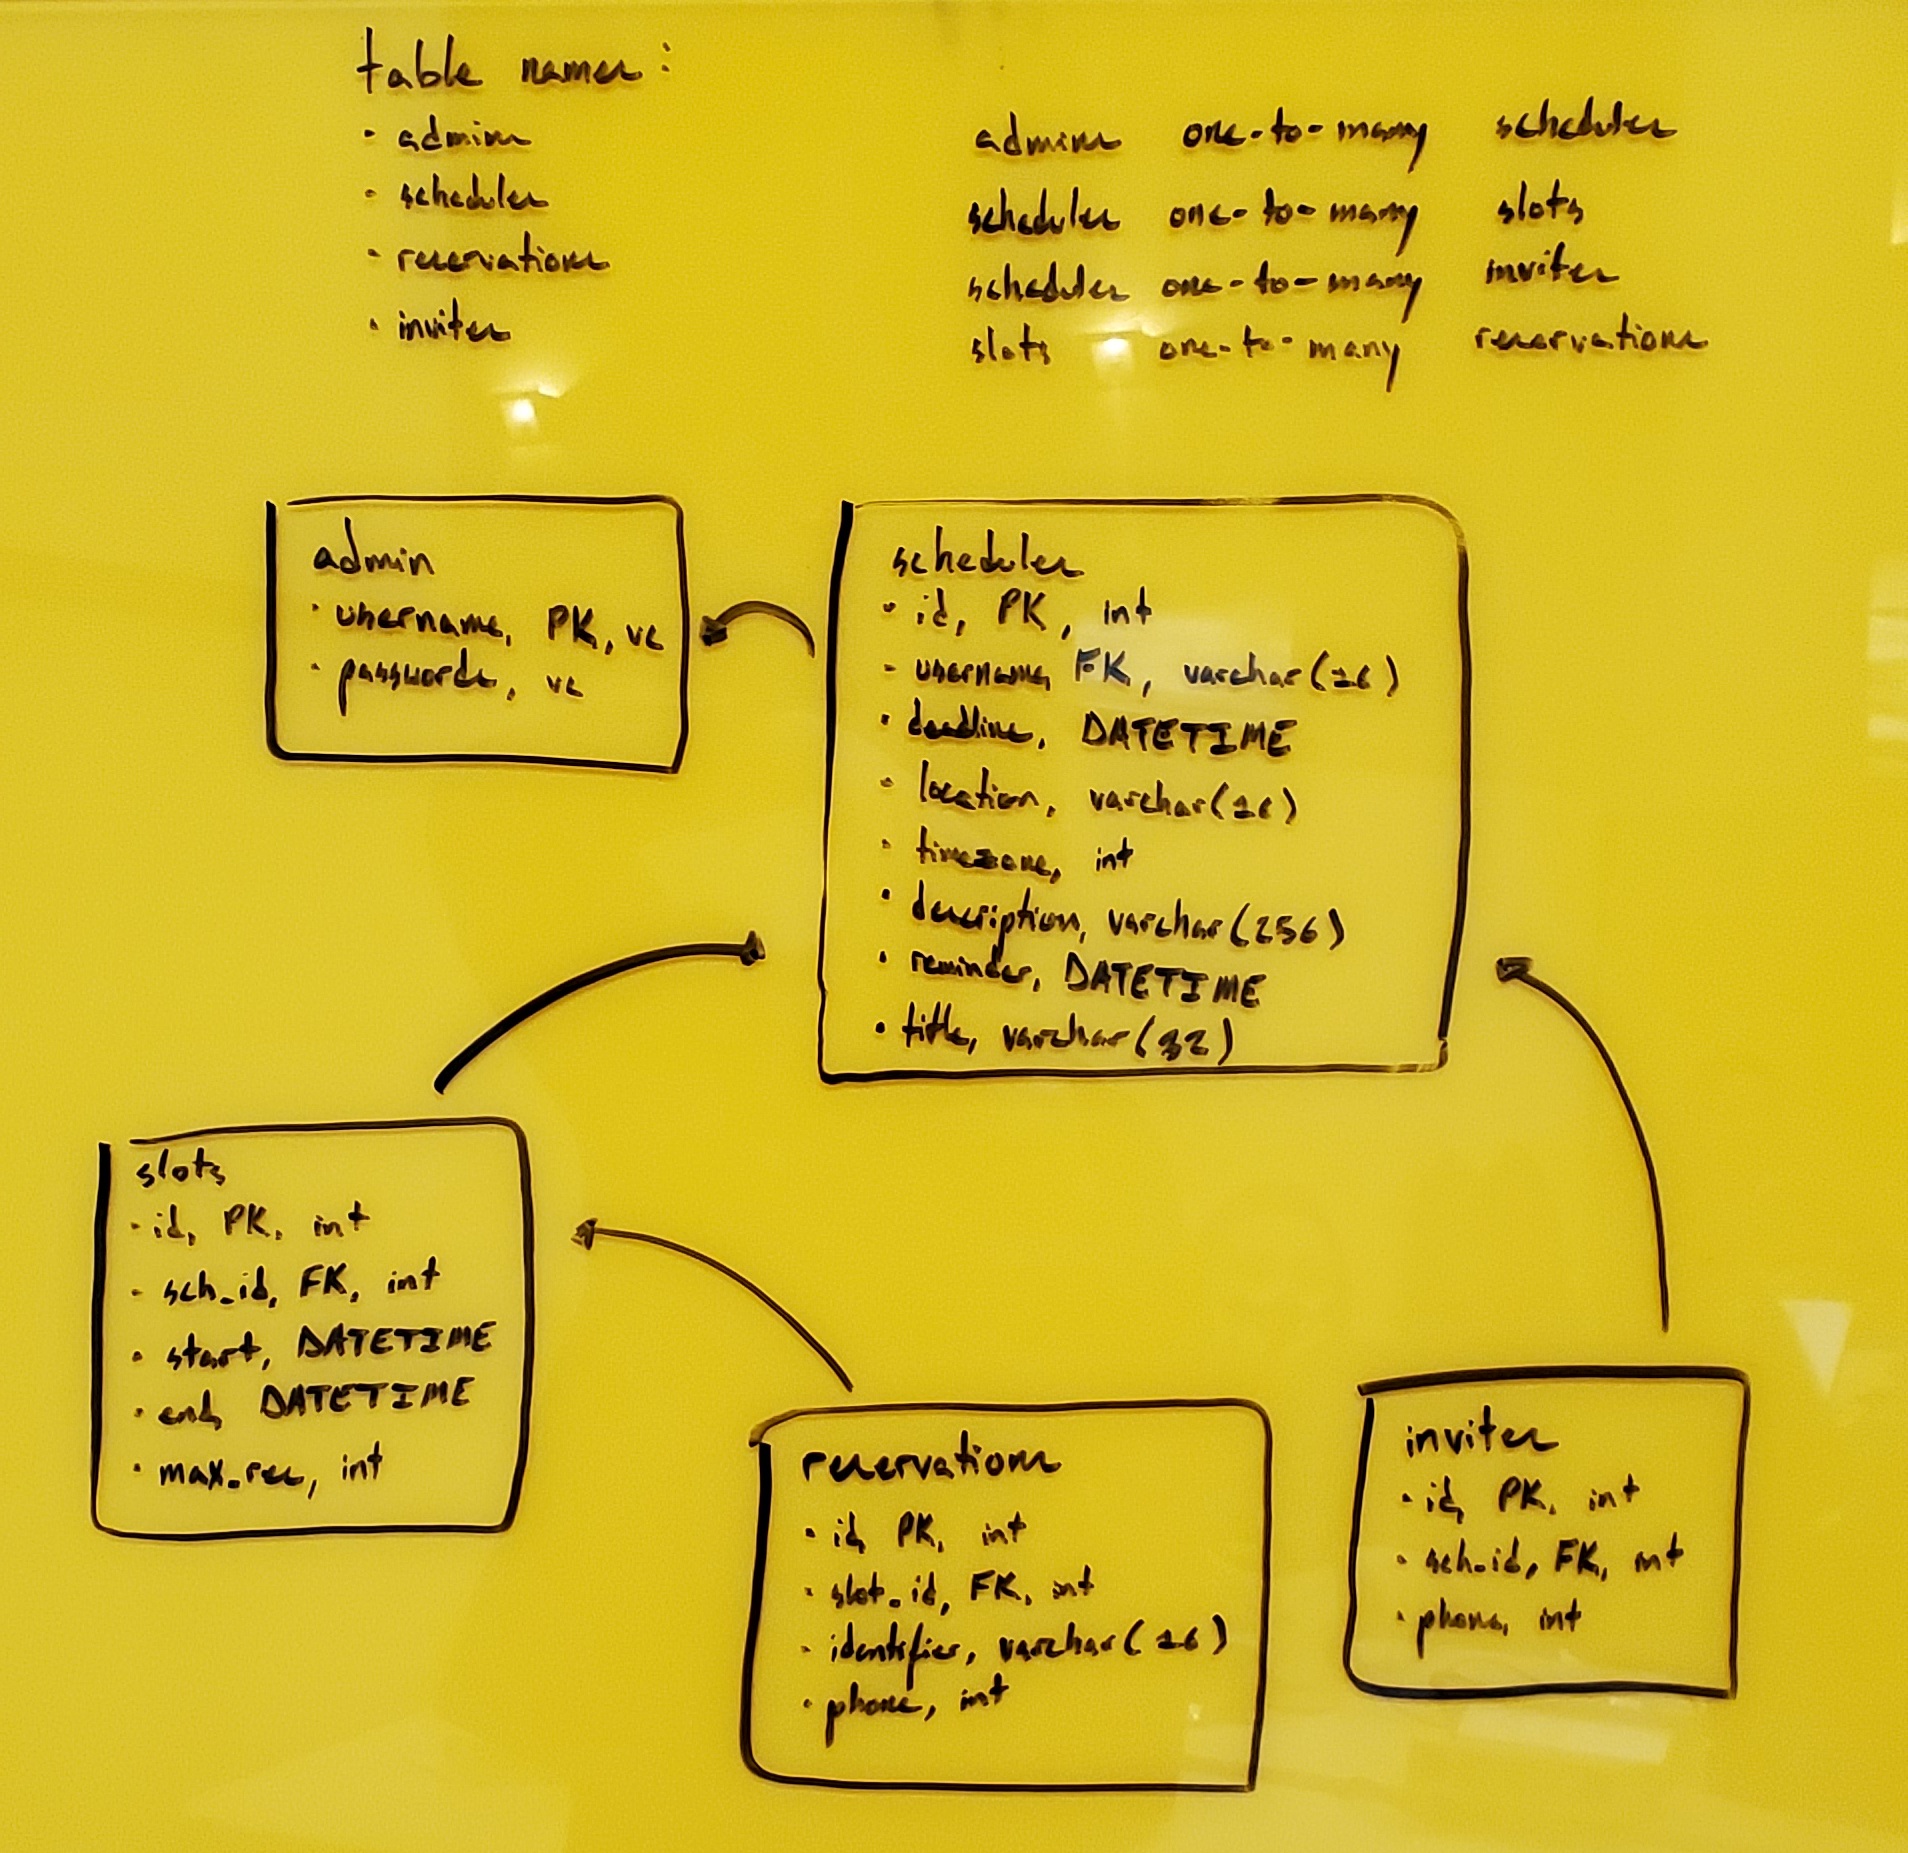 table names:
• admins
• schedules
• reservations
• invites
admins one-to-many schedules
schedules one-to-many slots
schedules one-to-many invites
slots one-to-many reservations
admin
• username, PK, vc
• passwords, vc
schedules
• id, PK, int
• username, FK, varchar(16)
• deadline, DATETIME
• location, varchar(16)
• timezone, int
• description, varchar(256)
• reminder, DATETIME
• title, varchar(32)
slots
• id, PK, int
• sch_id, FK, int
• start, DATETIME
• end, DATETIME
• max_res, int
reservations
• id, PK, int
• slot_id, FK, int
• identifier, varchar(16)
• phone, int
invites
• id, PK, int
• sch_id, FK, int
• phone, int